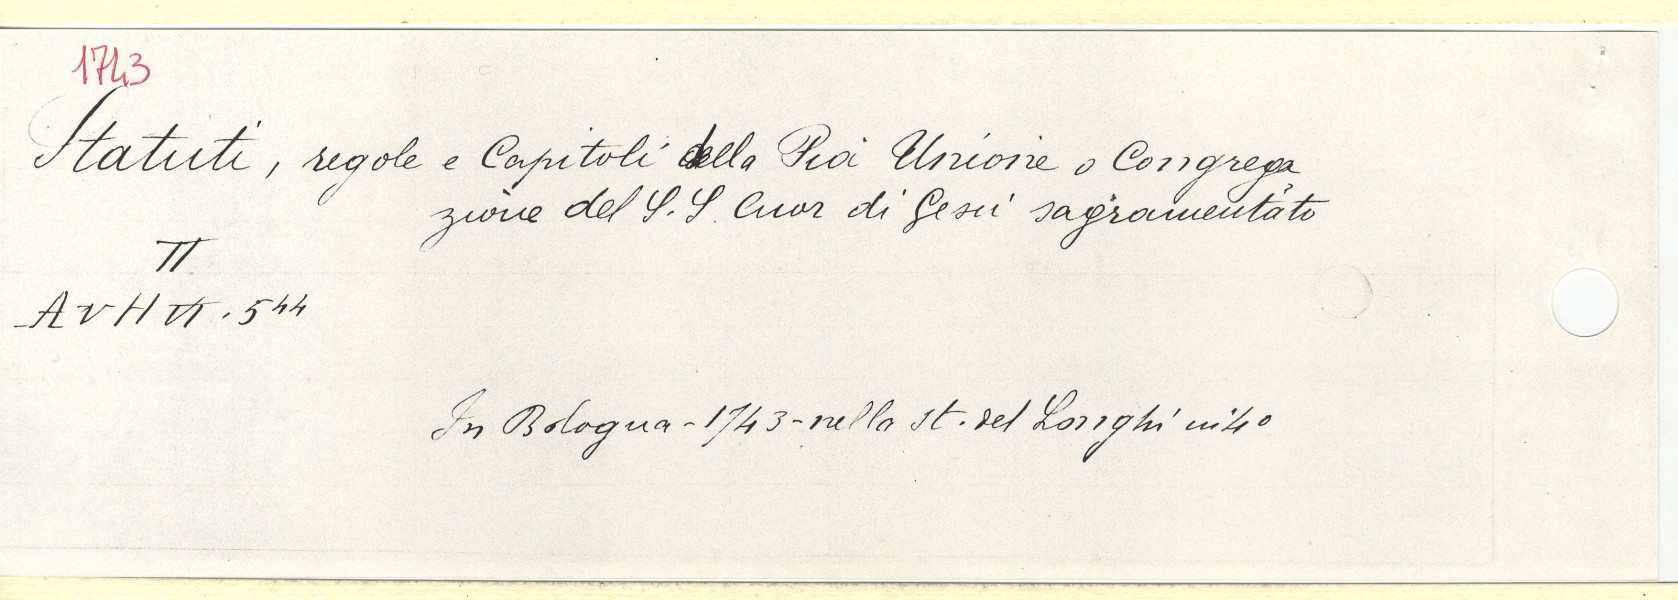 1743
Statuti, regole e Capitoli della Pia Unione o Congrega
zione del S.S. Cuor di Gesù sagramentato
II
A V H VI. 544
In Bologna - 1743 - nella st. del Longhi in 4º